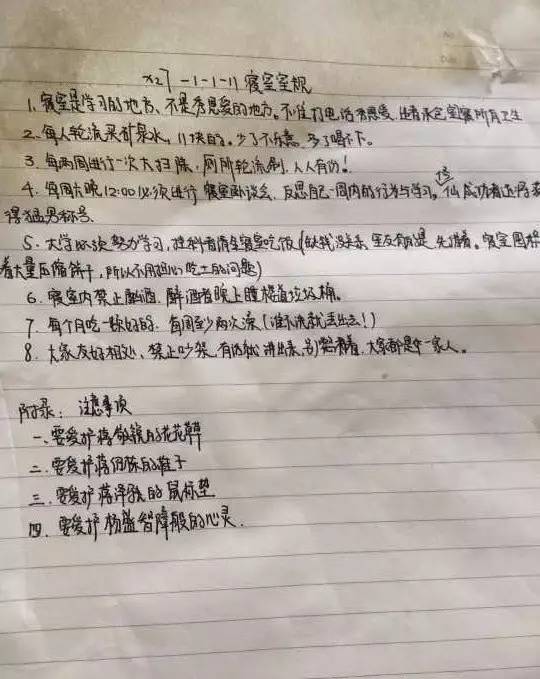 x27-1-1-11 寝室室规
1、寝室是学习的地方、不是秀恩爱的地方。不准打电话秀恩爱、违者承包寝室所有卫生
2、每人轮流买矿泉水，11块的。少了不乐意、多了喝不下。
3、每两周进行一次大扫除、厕所轮流刷、人人有份！
4、每周六晚12:00必须进行寝室卧谈会、反思自己一周内的行为与学习。成功者还将获
得猛男称号
5、大学必须努力学习，挂科者请全寝室吃饭（缺钱没关系 室友有的是、先借着。寝室囤积
着大量压缩饼干，所以不用担心吃土的问题）
6、寝室内禁止酗酒、醉酒者晚上睡楼道垃圾桶。
7、每个月吃一顿好的、每周至少两次澡（谁不洗就丢出去！）
8、大家友好相处、禁止吵架、有话就讲出来、别憋着、大家都是一家人。
附录：注意事项
一、要爱护蒋的花花草草
二、要爱护蒋的鞋子
三、要爱护蒋泽的鼠标垫
四、要爱护杨智障般的心灵.